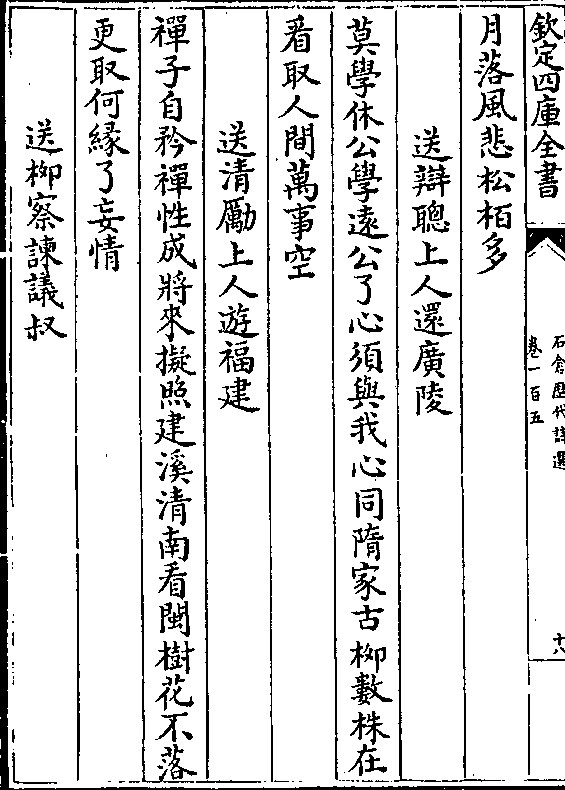 欽定四庫全書
石倉歷代詩選
卷一百五
十八
月落風悲松栢多
送辯聰上人還廣陵
莫學休公學遠公了心須與我心同隋家古桞數株在
㸔取人間萬事空
送清勵上人遊福建
禪子自矜禪性成將來擬照建溪清南看閩樹花不落
更取何緣了妄情
送桞察諫議叔